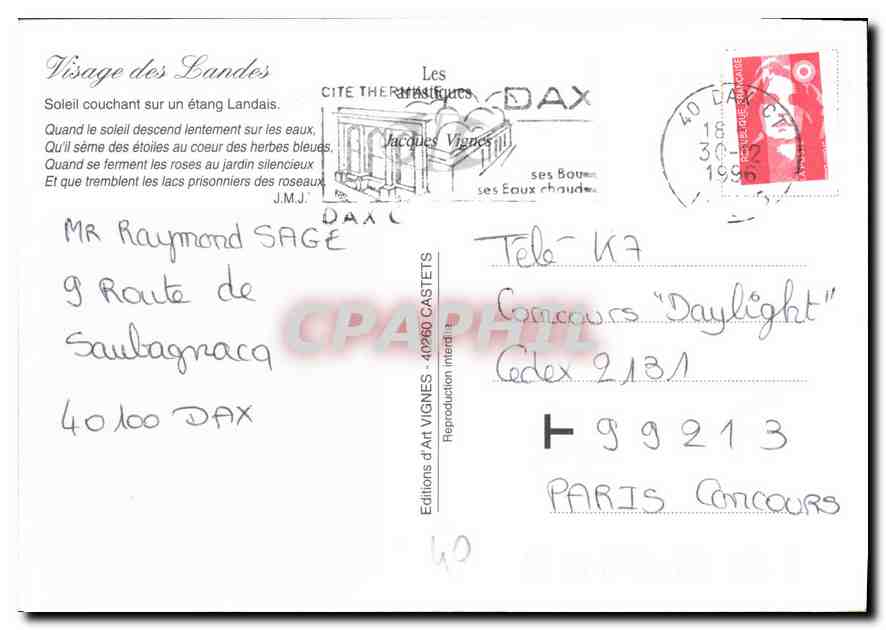 Visage des Landes
Soleil couchant sur un étang Landais.
Quand le soleil descend lentement sur les eaux,
Qu'il sème des étoiles au coeur des herbes bleues,
Quand se ferment les roses au jardin silencieux
Et que tremblent les lacs prisonniers des roseaux.
J.M.J.
Les
artistiques
Jacques Vignes
CITE THERMALE
DAX
ses Boues
ses Eaux chaudes
DAX
40 DAX CT
18
30-12
1996
REPUBLIQUE FRANÇAISE
LA POSTE
MR Raymond SAGE
9 Route de
Saubagnacq
40100 DAX
Editions d'Art VIGNES - 40260 CASTETS
Reproduction interdite
Télé K7
Concours "Daylight"
Cedex 2131
T 99213
PARIS Concours
40
CPAPHIL